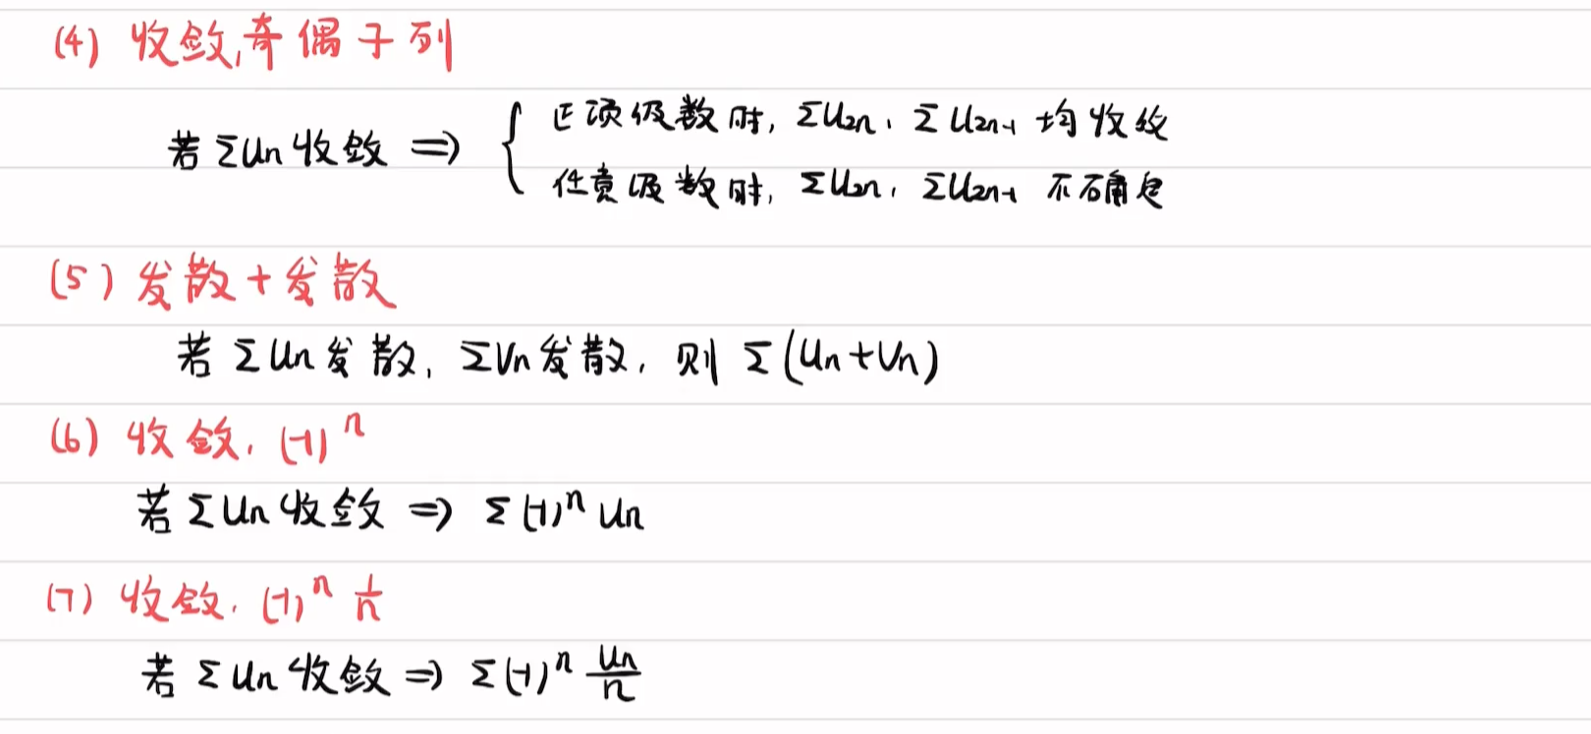 (4) 收敛,奇偶子列
若 ΣUn 收敛 ⇒ { 正项级数时, ΣU₂n, ΣU₂n₋₁ 均收敛
任意级数时, ΣU₂n, ΣU₂n₋₁ 不确定
(5) 发散+发散
若 ΣUn 发散, ΣVn 发散, 则 Σ(Un+Vn)
(6) 收敛, (-1)ⁿ
若 ΣUn 收敛 ⇒ Σ(-1)ⁿ Un
(7) 收敛, (-1)ⁿ 1/n
若 ΣUn 收敛 ⇒ Σ(-1)ⁿ Un/n